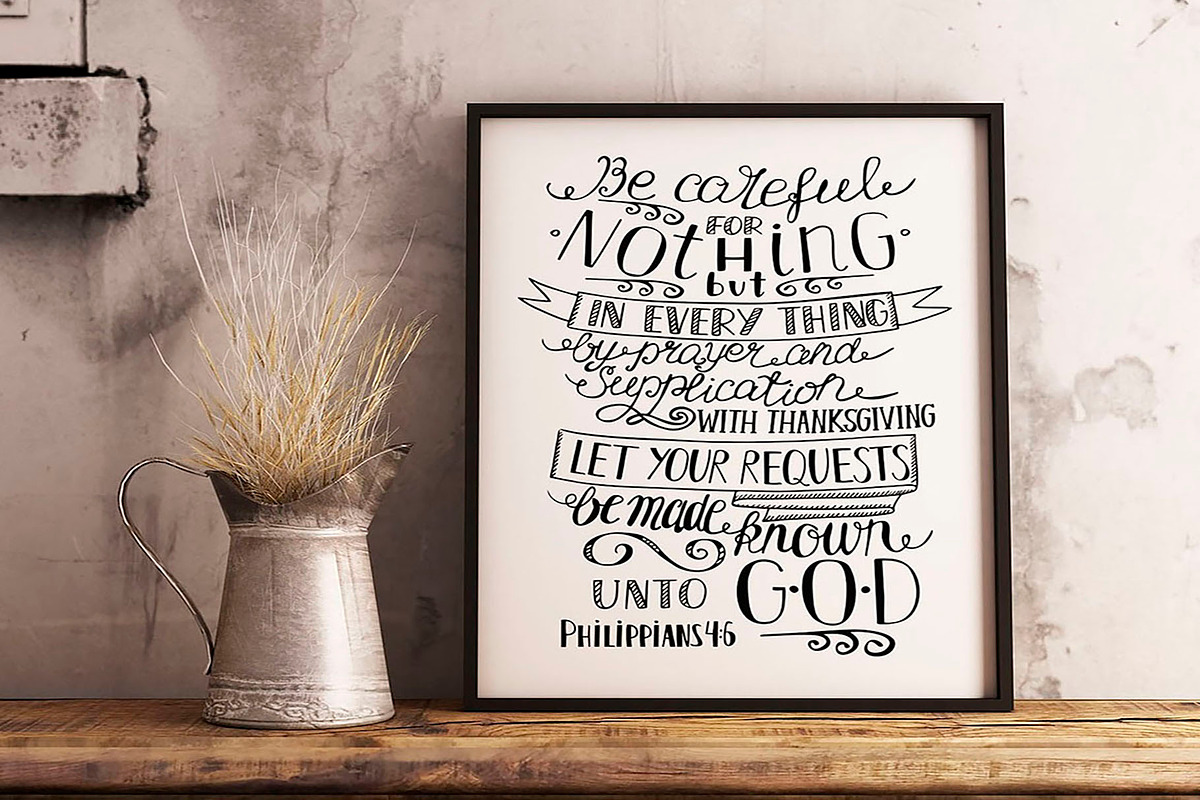 Be careful
FOR
NOTHING
but
IN EVERY THING
by prayer and
Supplication
WITH THANKSGIVING
LET YOUR REQUESTS
be made
known
UNTO G·O·D
PHILIPPIANS 4:6